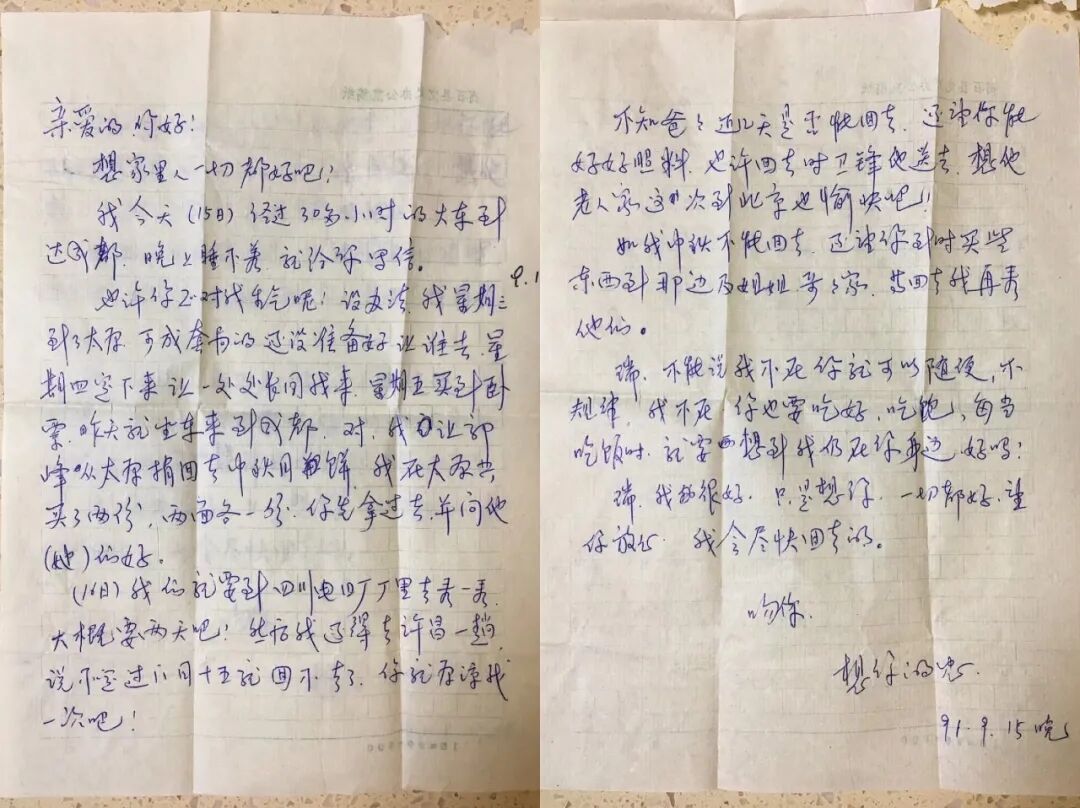 亲爱的你好！
想家里人一切都好吧！
我今天（15日）经过30多小时的火车到
达成都，晚上睡不着，就给你写信。
也许你还对我生气呢！没办法，我星期三
到了太原，可成套局的还没准备好让谁去，星
期四定下来让一处处长同我来，星期五买到卧
票，昨天就坐车来到成都，对，我让郭
峰从太原捎回去中秋月饼，我在太原共
买了两份，两面各一份，你先拿过去，并问他
（她）们好。
（16日）我们就要到四川电旧厂厂里去看一看，
大概要两天吧！然后我还得去许昌一趟，
说不定过八月十五就回不去了，你就原谅我
一次吧！
9.1
不知爸爸近几天是否能回去，还望你能
好好照料，也许回去时卫锋他送去，想他
老人家这次到北京也愉快吧！
如我中秋不能回去，还望你到时买些
东西到那边及姐姐哥哥家，等回去我再看
他们。
瑞，不能说我不在你就可以随便，不
规律，我不在你也要吃好，吃饱，每当
吃饭时，就要想到我仍在你身边，好吗？
瑞，我很好，只是想你，一切都好，望
你放心，我会尽快回去的。
吻你
想你的忠
91.9.15晚